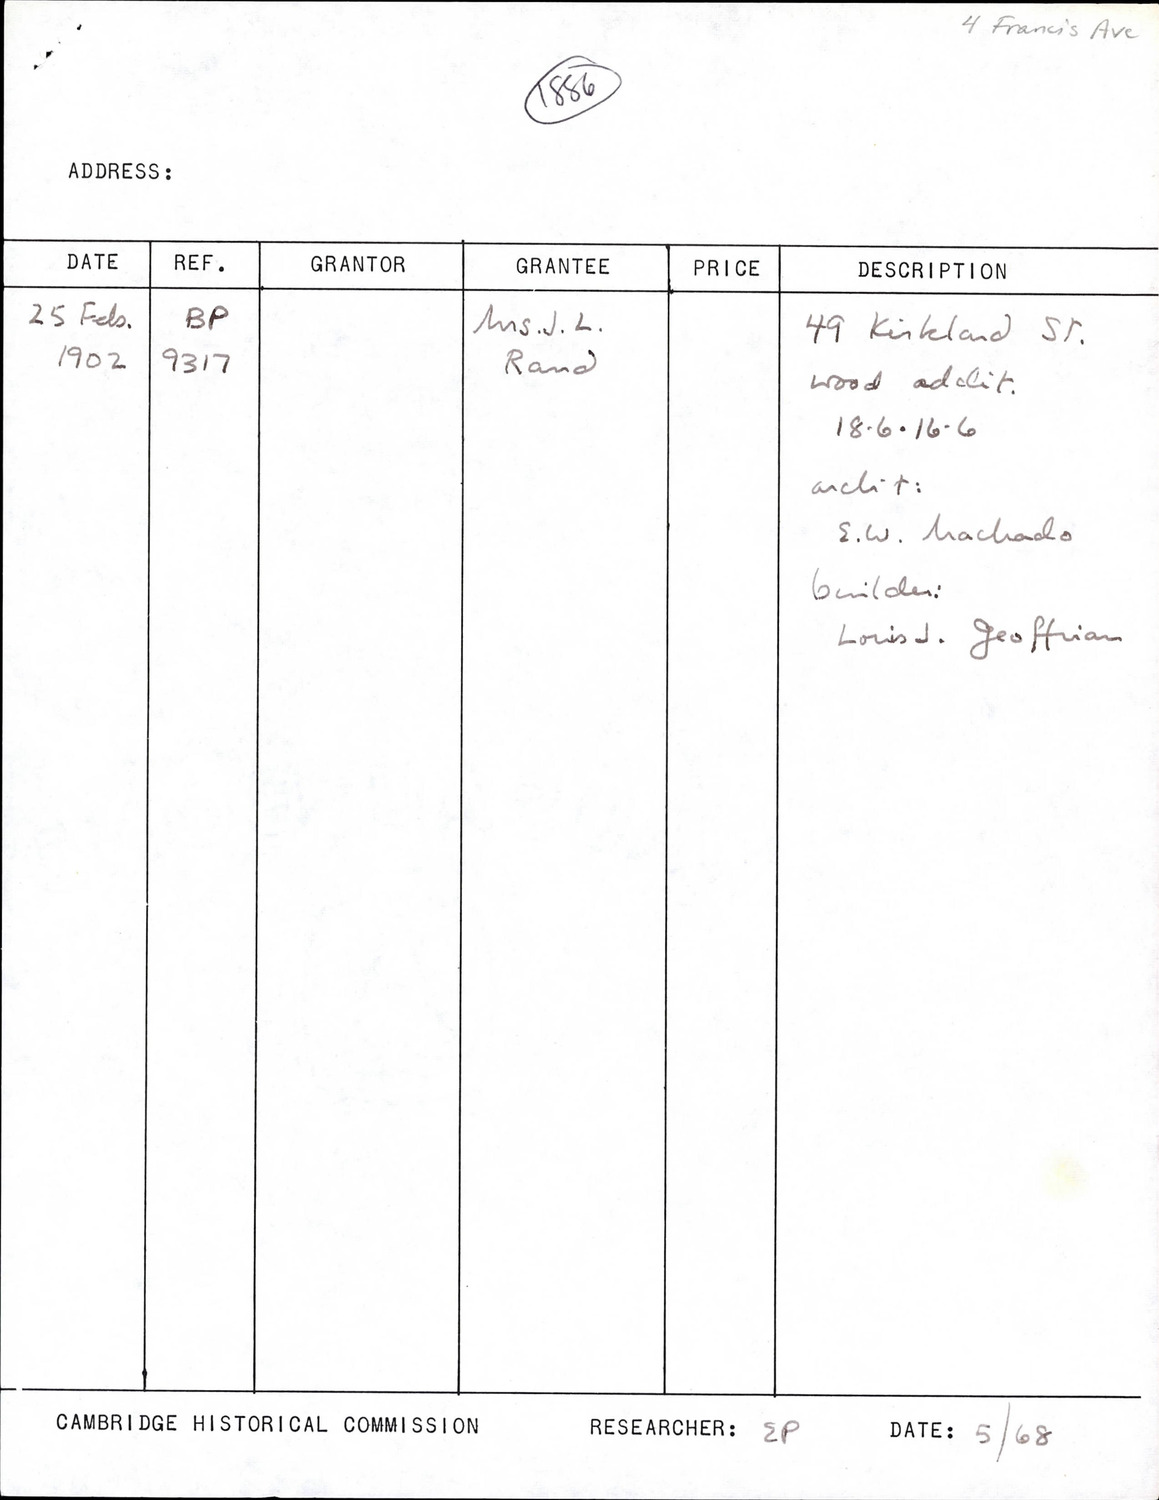 4 Francis Ave
1886
ADDRESS:
DATE REF. GRANTOR GRANTEE PRICE DESCRIPTION
25 Feb. BP Mrs. J. L. 49 Kirkland St.
1902 9317 Rand
wood addit.
18-6 • 16-6
archit:
E.W. Machado
builder:
Louis J. Geoffrian
CAMBRIDGE HISTORICAL COMMISSION RESEARCHER: EP DATE: 5/68